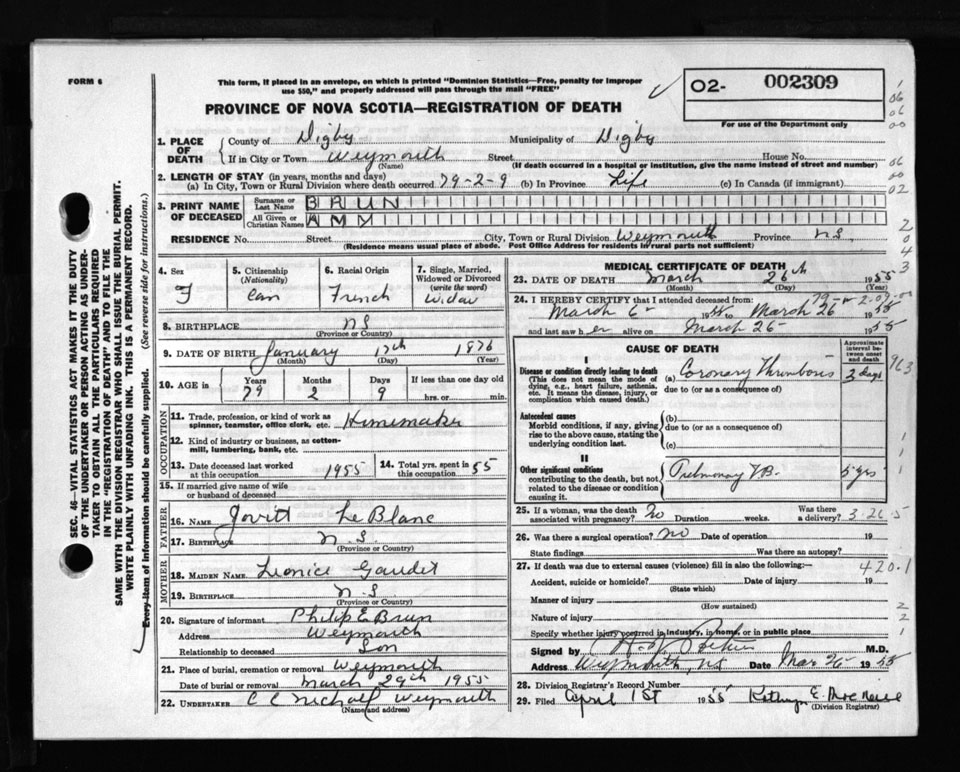 FORM 6
This form, if placed in an envelope, on which is printed "Dominion Statistics—Free, penalty for improper
use $50," and properly addressed will pass through the mail "FREE"
PROVINCE OF NOVA SCOTIA—REGISTRATION OF DEATH
O2- 002309
For use of the Department only
SEC. 46—VITAL STATISTICS ACT MAKES IT THE DUTY
OF THE UNDERTAKER OR PERSON ACTING AS UNDER-
TAKER TO OBTAIN ALL THE PARTICULARS REQUIRED
IN THE "REGISTRATION OF DEATH" AND TO FILE THE
SAME WITH THE DIVISION REGISTRAR WHO SHALL ISSUE THE BURIAL PERMIT.
WRITE PLAINLY WITH UNFADING INK. THIS IS A PERMANENT RECORD.
Every item of information should be carefully supplied. (See reverse side for instructions.)
1. PLACE OF DEATH
County of Digby Municipality of Digby
If in City or Town Weymouth Street House No.
(Name) (If death occurred in a hospital or institution, give the name instead of street and number)
2. LENGTH OF STAY (in years, months and days)
(a) In City, Town or Rural Division where death occurred 79-2-9 (b) In Province Life (c) In Canada (if immigrant)
3. PRINT NAME OF DECEASED
Surname or Last Name BRUN
All Given or Christian Names AMY
RESIDENCE No. Street City, Town or Rural Division Weymouth Province N.S.
(Residence means usual place of abode. Post Office Address for residents in rural parts not sufficient)
4. Sex F
5. Citizenship (Nationality) Can
6. Racial Origin French
7. Single, Married, Widowed or Divorced (write the word) Widow
8. BIRTHPLACE N S
(Province or Country)
9. DATE OF BIRTH January 17th 1876
(Month) (Day) (Year)
10. AGE in Years 79 Months 2 Days 9 If less than one day old hrs. or min.
OCCUPATION
11. Trade, profession, or kind of work as spinner, teamster, office clerk, etc. Homemaker
12. Kind of industry or business, as cotton-mill, lumbering, bank, etc.
13. Date deceased last worked at this occupation 1955
14. Total yrs. spent in this occupation 55
15. If married give name of wife or husband of deceased
FATHER
16. NAME Jovitt Le Blanc
17. BIRTHPLACE N. S.
(Province or Country)
MOTHER
18. MAIDEN NAME Leonice Gaudet
19. BIRTHPLACE N. S
(Province or Country)
20. Signature of informant Philip E Brun
Address Weymouth
Relationship to deceased Son
21. Place of burial, cremation or removal Weymouth
Date of burial or removal March 29th 1955
22. UNDERTAKER Weymouth
(Name and address)
MEDICAL CERTIFICATE OF DEATH
23. DATE OF DEATH March 26th 1955
(Month) (Day)
24. I HEREBY CERTIFY that I attended deceased from:
March 6 1955 to March 26 1955
and last saw her alive on March 26 1955
CAUSE OF DEATH
Approximate interval between onset and death
I
Disease or condition directly leading to death
(This does not mean the mode of dying, e.g., heart failure, asthenia, etc. It means the disease, injury, or complication which caused death.)
(a) Coronary Thrombosis 3 days
due to (or as a consequence of)
Antecedent causes
Morbid conditions, if any, giving rise to the above cause, stating the underlying condition last.
(b)
due to (or as a consequence of)
(c)
II
Other significant conditions contributing to the death, but not related to the disease or condition causing it.
Pulmonary T.B. 5 yrs
25. If a woman, was the death associated with pregnancy? No Duration weeks. Was there a delivery?
26. Was there a surgical operation? no Date of operation 19
State findings Was there an autopsy?
27. If death was due to external causes (violence) fill in also the following:— 420.1
Accident, suicide or homicide? Date of injury 19
(State which)
Manner of injury
(How sustained)
Nature of injury
Specify whether injury occurred in industry, in home, or in public place
Signed by M.D.
Address Weymouth, NS Date Mar 26 1955
28. Division Registrar's Record Number
29. Filed April 1st 1955
(Division Registrar)